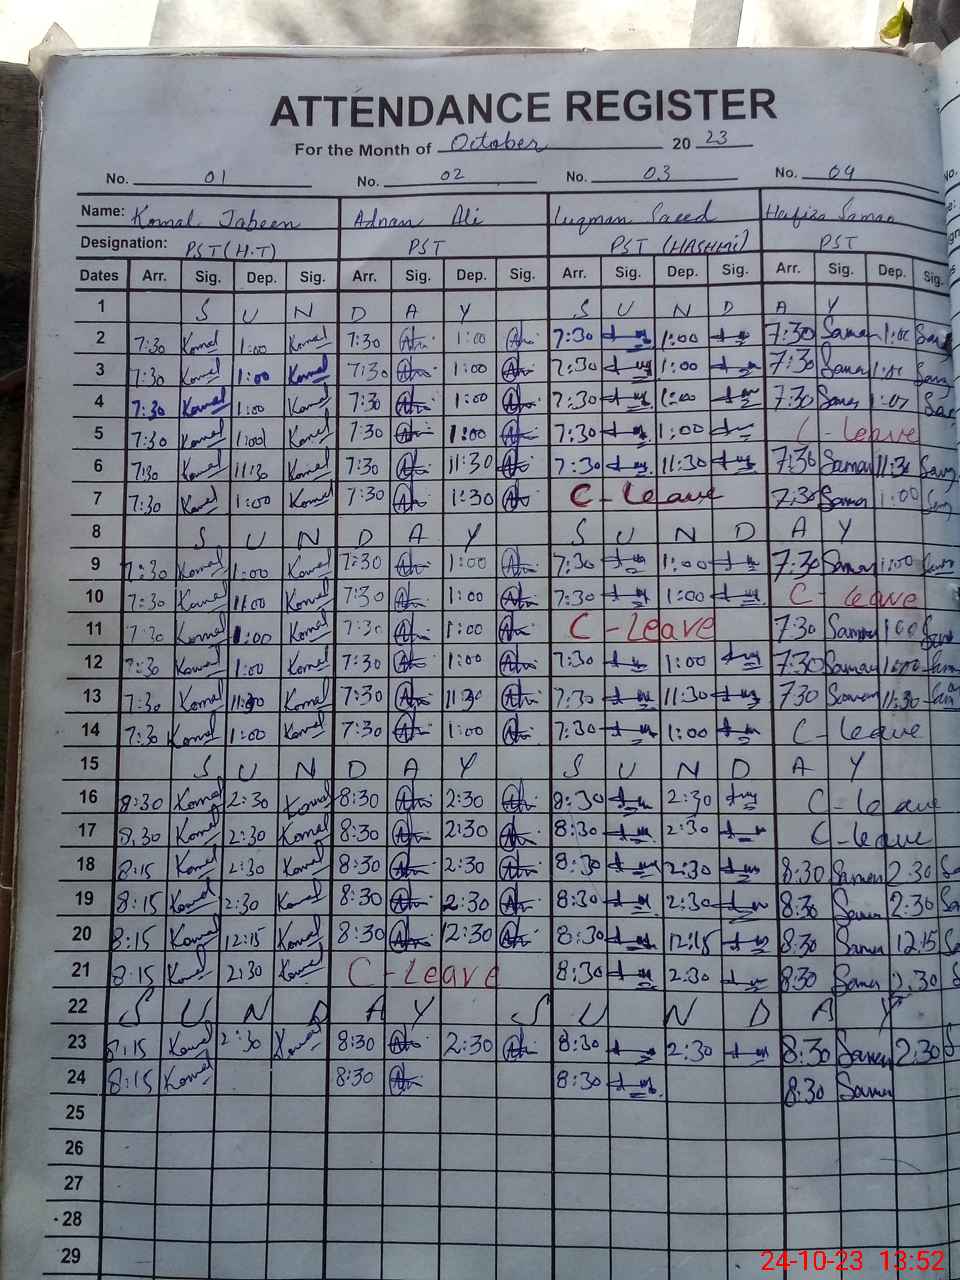 ATTENDANCE REGISTER
For the Month of October 20 23
No. 01 No. 02 No. 03 No. 04
Name: Komal Jabeen Adnan Ali Luqman Saeed Hafiza Saman
Designation: PST (H.T) PST PST (HASHMI) PST
Dates Arr. Sig. Dep. Sig. Arr. Sig. Dep. Sig. Arr. Sig. Dep. Sig. Arr. Sig. Dep. Sig.
1 S U N D A Y S U N D A Y
2 7:30 Komal 1:00 Komal 7:30 1:00 7:30 1:00 7:30 Saman 1:00
3 7:30 Komal 1:00 Komal 7:30 1:00 7:30 1:00 7:30 Saman
4 7:30 Komal 1:00 Komal 7:30 1:00 7:30 1:00 7:30 Saman
5 7:30 Komal 1:00 Komal 7:30 1:00 7:30 1:00 C-leave
6 7:30 Komal 11:30 Komal 7:30 11:30 7:30 11:30 7:30 Saman 11:30
7 7:30 Komal 1:00 Komal 7:30 1:30 C-leave 7:30 Saman 1:00
8 S U N D A Y S U N D A Y
9 7:30 Komal 1:00 Komal 7:30 1:00 7:30 1:00 7:30 Saman 1:00
10 7:30 Komal 1:00 Komal 7:30 1:00 7:30 1:00 C-leave
11 7:30 Komal 1:00 Komal 7:30 1:00 C-leave 7:30 Saman 1:00
12 7:30 Komal 1:00 Komal 7:30 1:00 7:30 1:00 7:30 Saman 1:00
13 7:30 Komal 11:30 Komal 7:30 11:30 7:30 11:30 7:30 Saman 11:30
14 7:30 Komal 1:00 Komal 7:30 1:00 7:30 1:00 C-leave
15 S U N D A Y S U N D A Y
16 8:30 Komal 2:30 Komal 8:30 2:30 8:30 2:30 C-leave
17 8:30 Komal 2:30 Komal 8:30 2:30 8:30 2:30 C-leave
18 8:15 Komal 2:30 Komal 8:30 2:30 8:30 2:30 8:30 Saman 2:30
19 8:15 Komal 2:30 Komal 8:30 2:30 8:30 2:30 8:30 Saman 2:30
20 8:15 Komal 12:15 Komal 8:30 12:30 8:30 12:15 8:30 Saman 12:15
21 8:15 Komal 2:30 Komal C-Leave 8:30 2:30 8:30 Saman 2:30
22 S U N D A Y S U N D A Y
23 8:15 Komal 2:30 Komal 8:30 2:30 8:30 2:30 8:30 Saman 2:30
24 8:15 Komal 8:30 8:30 8:30 Saman
25
26
27
28
29
24-10-23 13:52